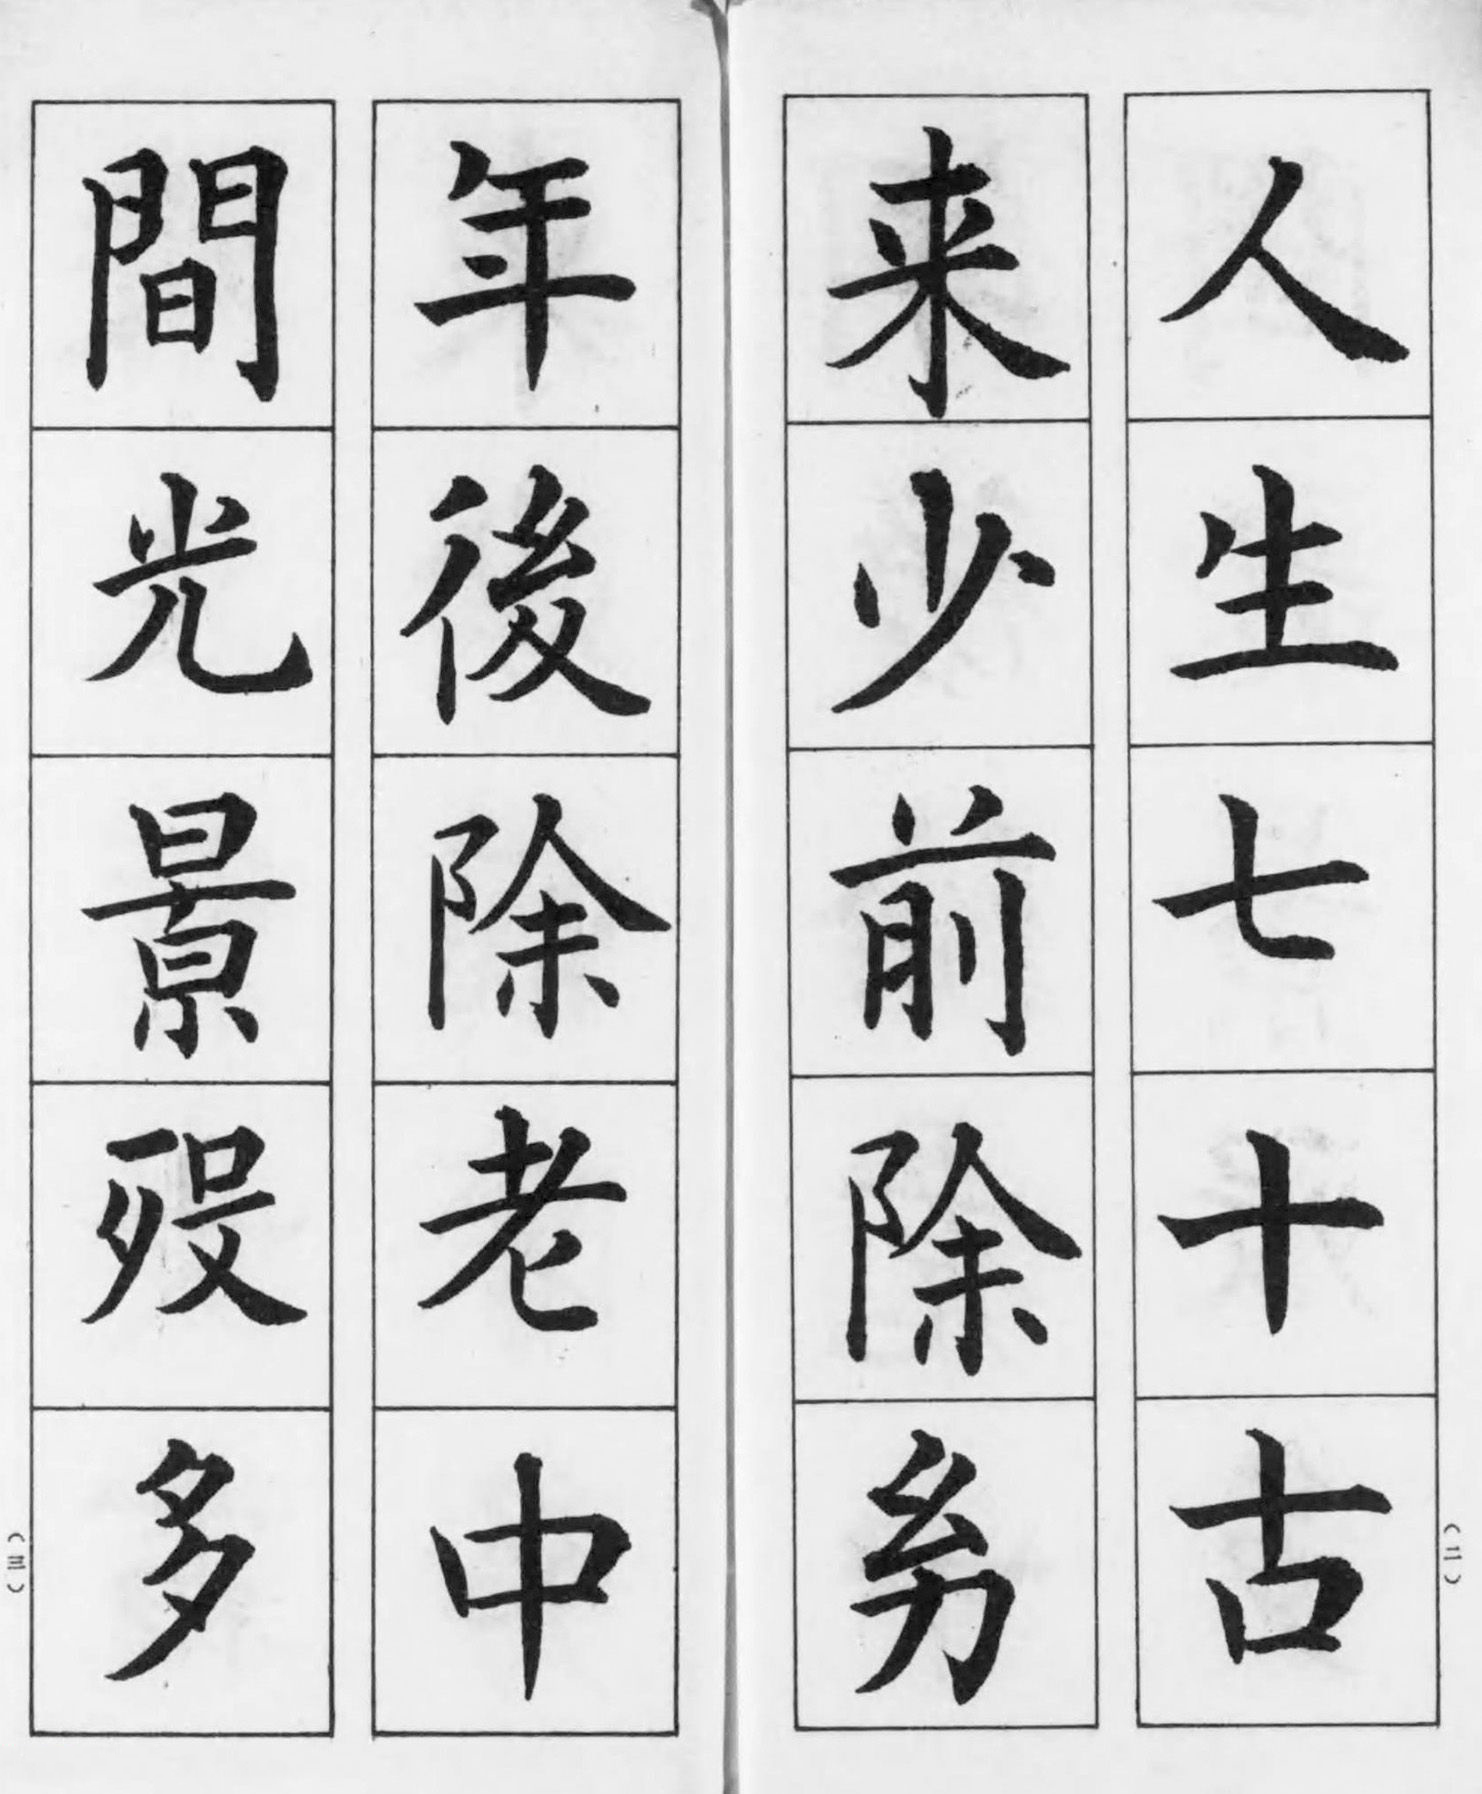 人生七十古
来少前除幼
(二)
年後除老中
間光景殁多
(三)